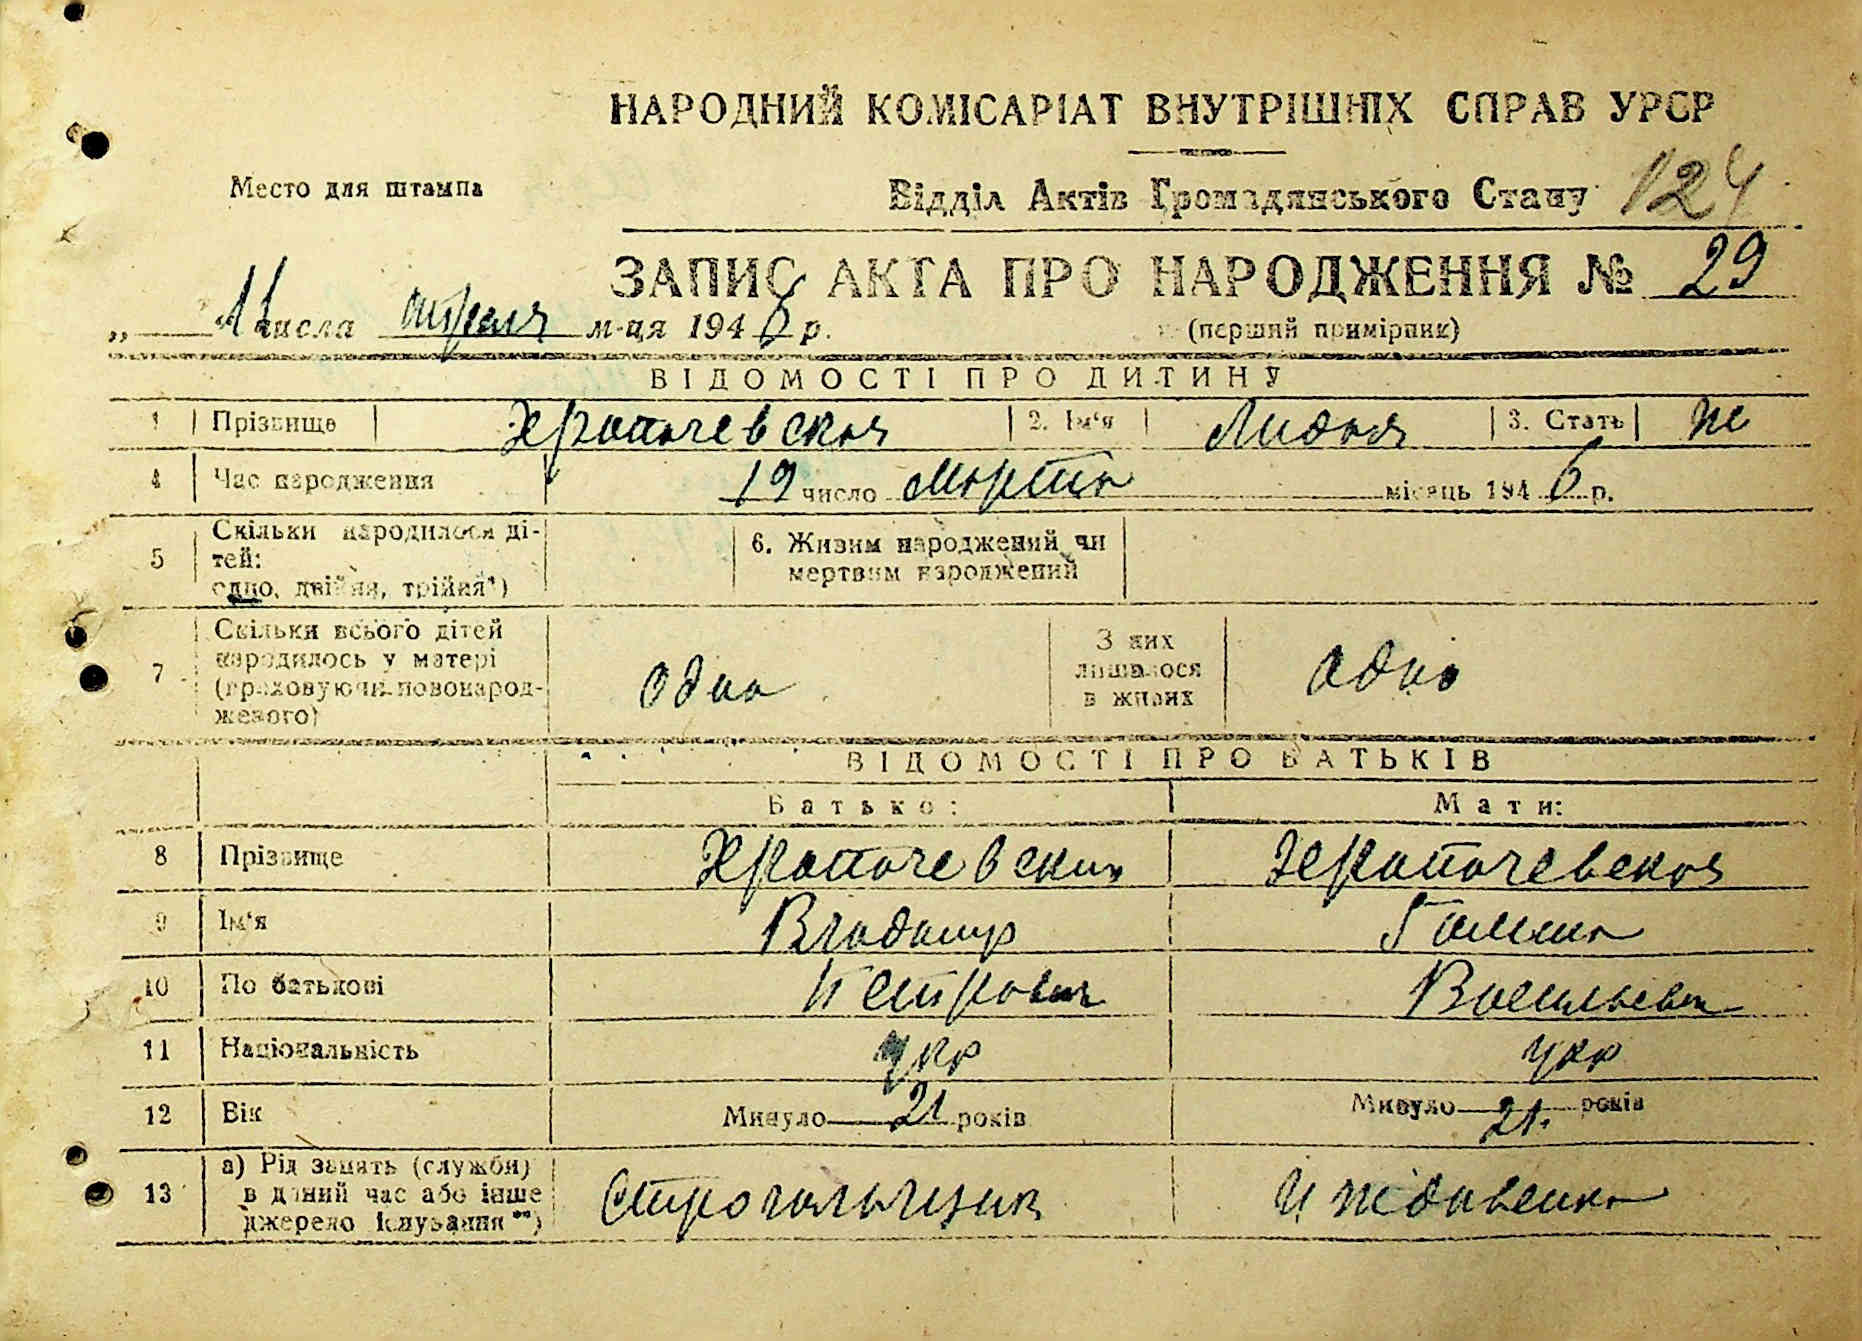 НАРОДНИЙ КОМІСАРІАТ ВНУТРІШНІХ СПРАВ УРСР
Место для штампа
Відділ Актів Громадянського Стану 124
ЗАПИС АКТА ПРО НАРОДЖЕННЯ № 29
„ 11 числа апреля м-ця 1946 р. (перший примірник)
ВІДОМОСТІ ПРО ДИТИНУ
1 Прізвище Храпачевская 2. Ім'я Лидия 3. Стать ж
4 Час народження 19 число Марта місяць 1946 р.
5 Скільки народилося ді-
тей:
одно, двійня, трійня*)
6. Живим народжений чи
мертвим народжений
7 Скільки всього дітей
народилось у матері
(враховуючи новонарод-
женого)
одна
З них
лишилося
в живих
одна
ВІДОМОСТІ ПРО БАТЬКІВ
Батько: Мати:
8 Прізвище Храпачевский Храпачевская
9 Ім'я Владимир Галина
10 По батькові Петрович Васильевна
11 Національність укр укр
12 Вік Минуло 21 років Минуло 21. років
13 а) Рід занять (служби)
в даний час або інше
джерело існування**)
Строгальщик Иждивенка